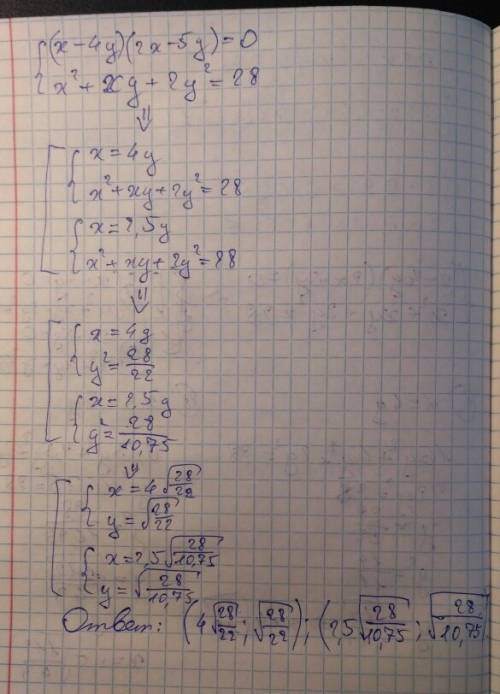 (x-4y)(2x-5y)=0
x²+xy+2y²=28
⇓
x=4y
x²+xy+2y²=28
x=2,5y
x²+xy+2y²=28
⇓
x=4y
y²=28/22
x=2,5y
y²=28/10,75
⇓
x=4√(28/22)
y=√(28/22)
x=2,5√(28/10,75)
y=√(28/10,75)
Ответ: (4√(28/22); √(28/22)); (2,5√(28/10,75); √(28/10,75)